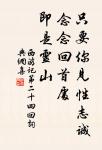 只要你見性志誠
念念回首處
即是靈山
西游记第二十四回句